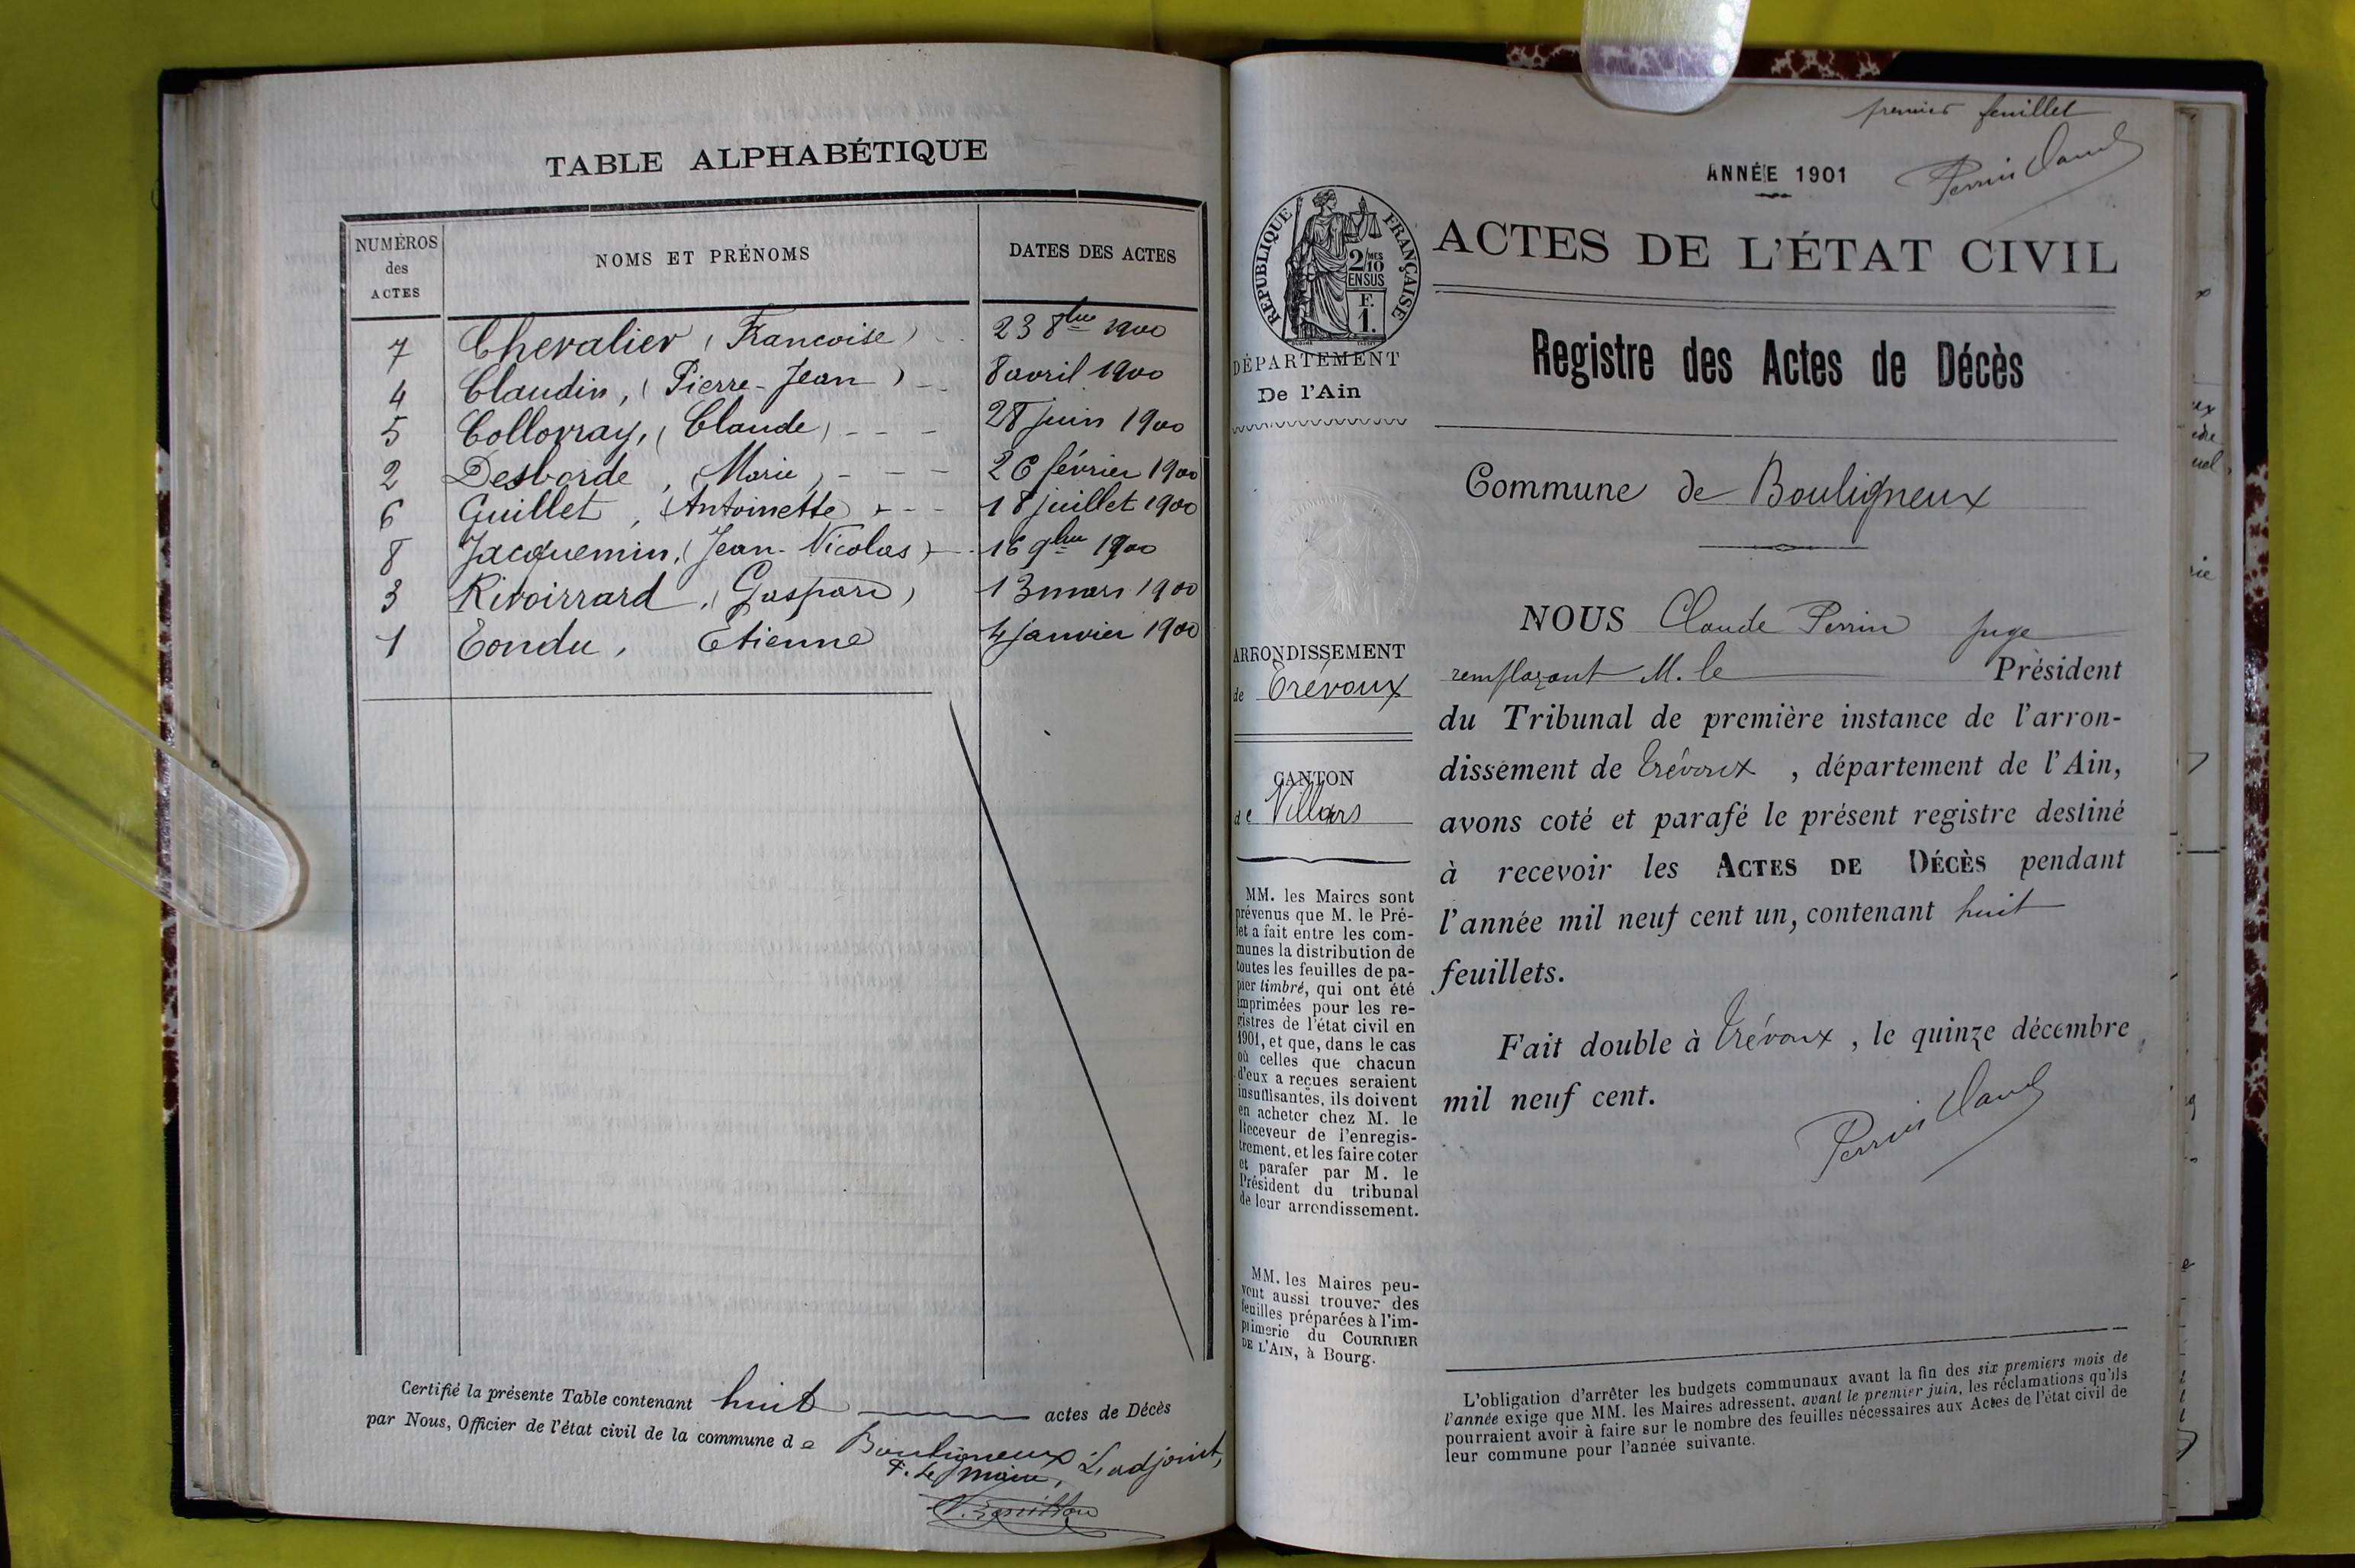 TABLE ALPHABÉTIQUE
NUMÉROS des ACTES NOMS ET PRÉNOMS DATES DES ACTES
7 Chevalier (Francoise) 23 8bre 1900
4 Claudin, (Pierre-Jean) 8 avril 1900
5 Collovray, (Claude) 28 juin 1900
2 Desborde, (Marie) 26 février 1900
6 Guillet, (Antoinette) 18 juillet 1900
8 Jacquemin, (Jean-Nicolas) 16 9bre 1900
3 Rivoirrard, (Gaspard) 13 mars 1900
1 Tondu, Etienne 4 janvier 1900
Certifié la présente Table contenant huit actes de Décès
par Nous, Officier de l'état civil de la commune de Bouligneux
P. le Maire, L'adjoint,
premier feuillet
Perrin Claude
ANNÉE 1901
RÉPUBLIQUE FRANÇAISE
2/10 MES
EN SUS
F.
1.
ACTES DE L'ÉTAT CIVIL
DÉPARTEMENT
De l'Ain
Registre des Actes de Décès
Commune de Bouligneux
ARRONDISSEMENT
de Trévoux
CANTON
de Villars
MM. les Maires sont
prévenus que M. le Pré-
fet a fait entre les com-
munes la distribution de
toutes les feuilles de pa-
pier timbré, qui ont été
imprimées pour les re-
gistres de l'état civil en
1901, et que, dans le cas
où celles que chacun
d'eux a reçues seraient
insuffisantes, ils doivent
en acheter chez M. le
Receveur de l'enregis-
trement, et les faire coter
et parafer par M. le
Président du tribunal
de leur arrondissement.
MM. les Maires peu-
vent aussi trouver des
feuilles préparées à l'im-
primerie du COURRIER
DE L'AIN, à Bourg.
NOUS Claude Perrin juge
remplaçant M. le Président
du Tribunal de première instance de l'arron-
dissement de Trévoux, département de l'Ain,
avons coté et parafé le présent registre destiné
à recevoir les ACTES DE DÉCÈS pendant
l'année mil neuf cent un, contenant huit
feuillets.
Fait double à Trévoux, le quinze décembre
mil neuf cent.
Perrin Claude
L'obligation d'arrêter les budgets communaux avant la fin des six premiers mois de
l'année exige que MM. les Maires adressent, avant le premier juin, les réclamations qu'ils
pourraient avoir à faire sur le nombre des feuilles nécessaires aux Actes de l'état civil de
leur commune pour l'année suivante.